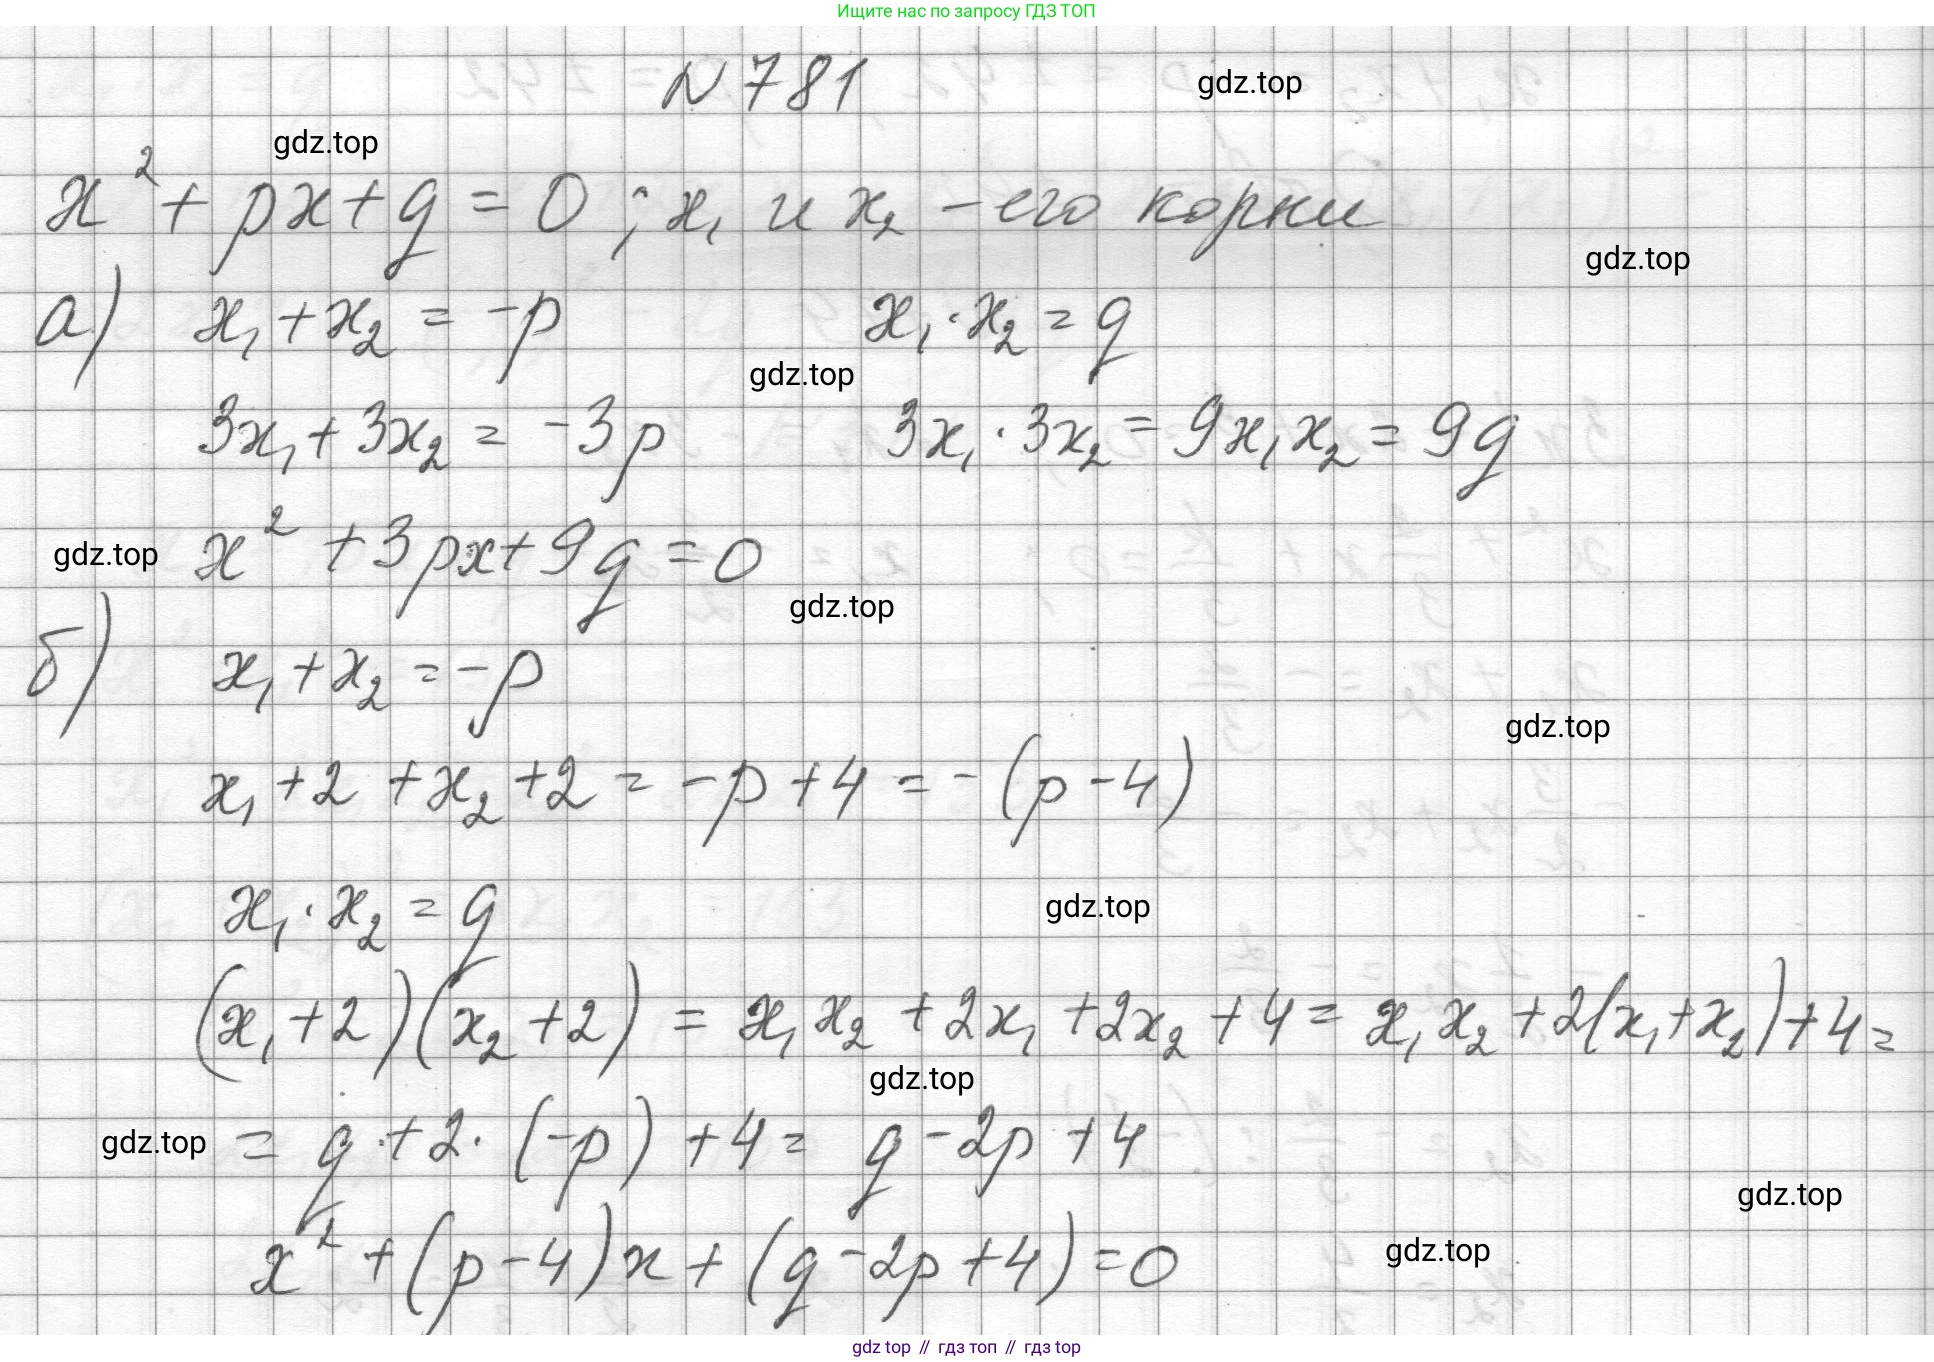 Ищите нас по запросу ГДЗ ТОП
N 781
gdz.top
gdz.top
x² + px + q = 0 ; x₁ и x₂ – его корни
gdz.top
а) x₁ + x₂ = -p x₁ · x₂ = q
gdz.top
3x₁ + 3x₂ = -3p 3x₁ · 3x₂ = 9x₁x₂ = 9q
gdz.top x² + 3px + 9q = 0
gdz.top
б) x₁ + x₂ = -p
gdz.top
x₁ + 2 + x₂ + 2 = -p + 4 = -(p - 4)
x₁ · x₂ = q
gdz.top
(x₁ + 2)(x₂ + 2) = x₁x₂ + 2x₁ + 2x₂ + 4 = x₁x₂ + 2(x₁ + x₂) + 4 =
gdz.top
gdz.top = q + 2 · (-p) + 4 = q - 2p + 4
gdz.top
x² + (p - 4)x + (q - 2p + 4) = 0
gdz.top
gdz top // гдз топ // гдз top